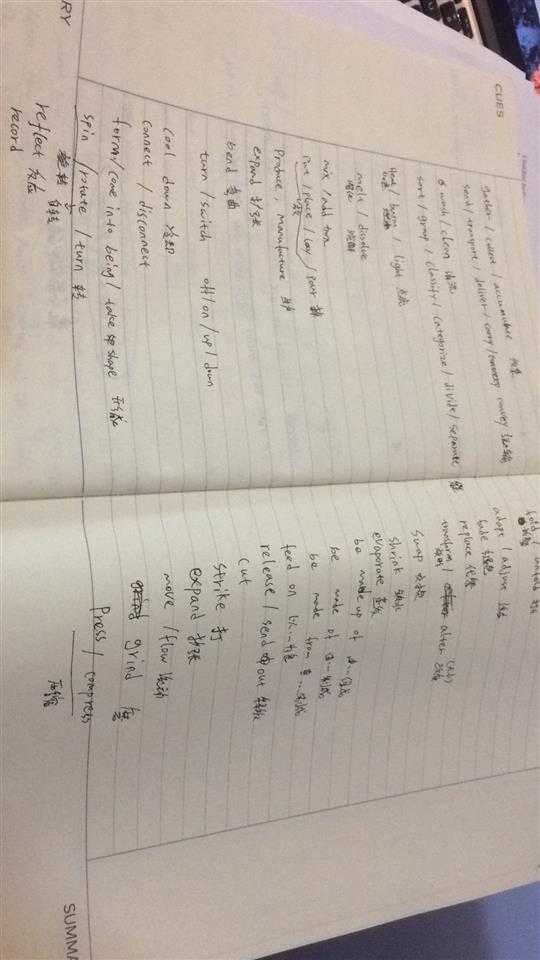 CUES
gather / collect / accumulate 收集
send / transport / deliver / carry / convey 运输
wash / clean 清洗
sort / group / classify / categorize / divide / separate
Heat / burn / light 点燃
melt / dissolve
溶解
mix / add
Put / place / lay / pour
produce, manufacture 生产
expand 扩张
bend 弯曲
turn / switch off / on / up / down
cool down 冷却
connect / disconnect
form / come into being / take shape 形成
spin / rotate / turn 转
自转
reflect 反应
record
RY
fold / unfold
adopt / adjust
fade
replace 代替
transform / alter
改变
swap 交换
shrink
evaporate 蒸发
be made up of
be made of 由...制成
be made from 由...制成
feed on 以...为食
release / send out 释放
cut
strike 打
expand 扩张
move / flow 流动
grind
Press / compress
压缩
SUMMA